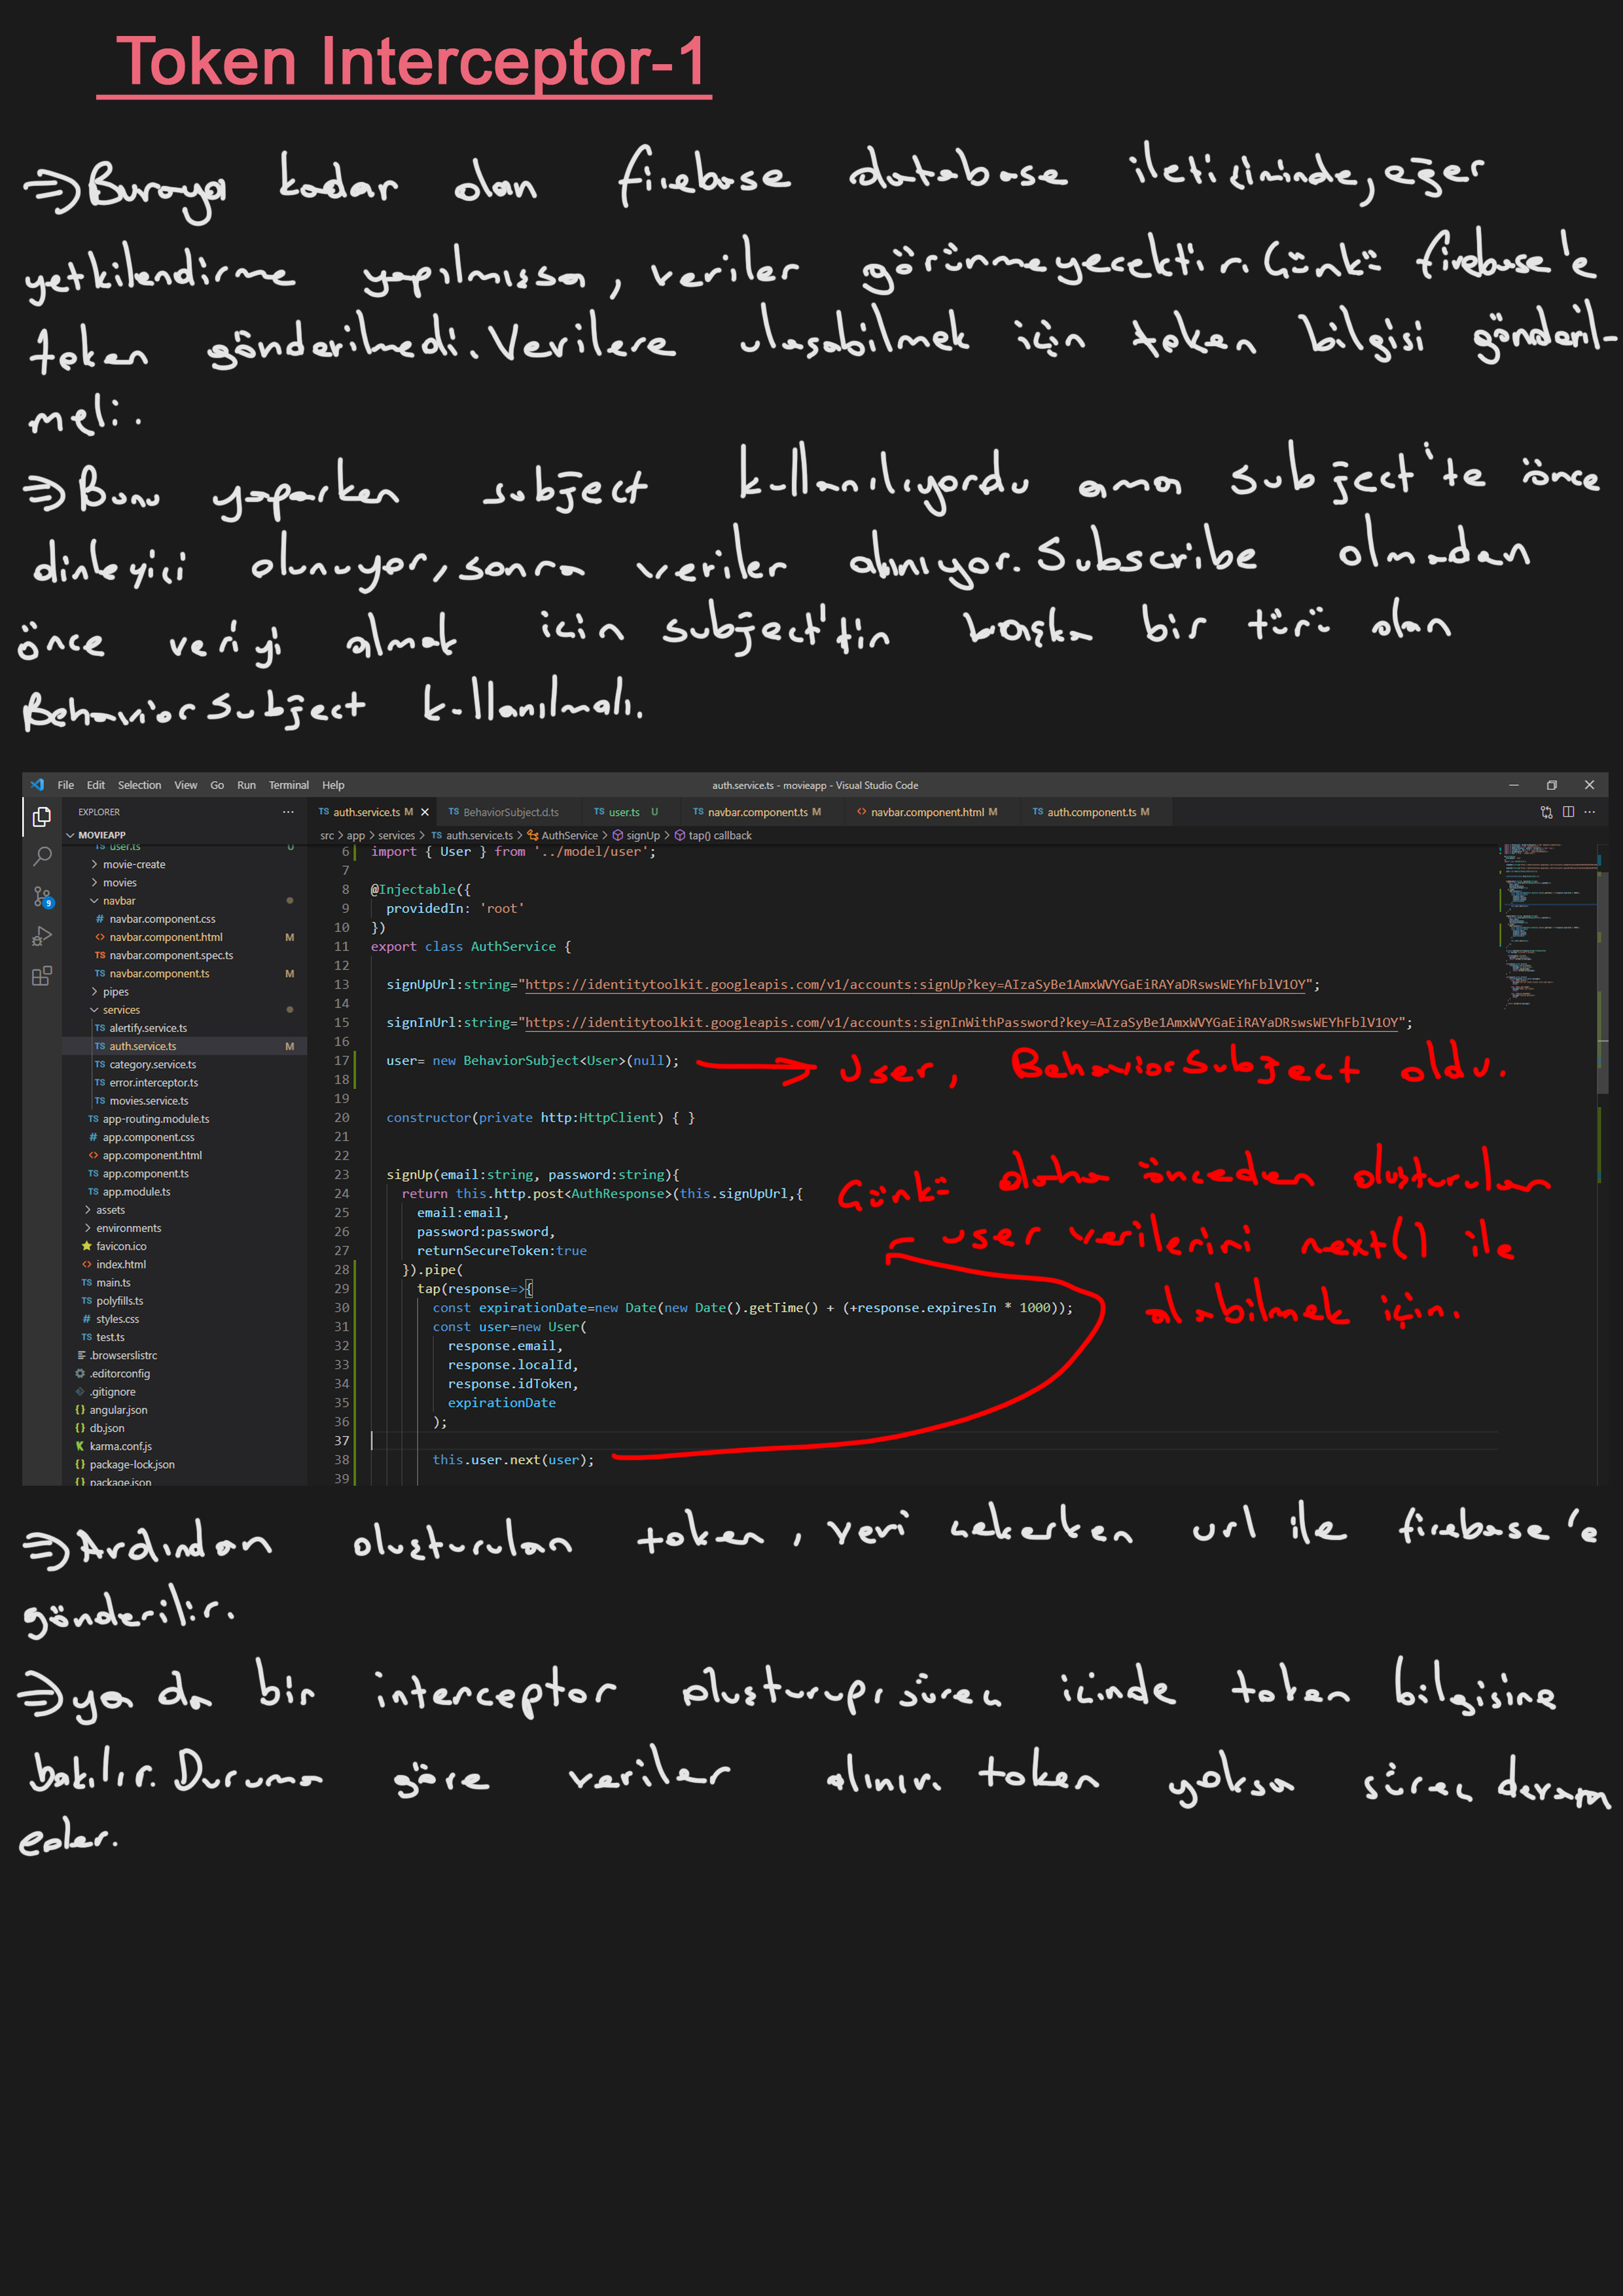 Token Interceptor-1
⇒Buraya kadar olan firebase database iletişiminde, eğer
yetkilendirme yapılmışsa, veriler görünmeyecektir. Çünkü firebase'e
token gönderilmedi. Verilere ulaşabilmek için token bilgisi gönderil-
meli.
⇒Bunu yaparken subject kullanılıyordu ama subject'te önce
dinleyici olunuyor, sonra veriler alınıyor. Subscribe olmadan
önce veriyi almak için subject'tin başka bir türü olan
BehaviorSubject kullanılmalı.
File Edit Selection View Go Run Terminal Help auth.service.ts - movieapp - Visual Studio Code
EXPLORER ··· TS auth.service.ts M TS BehaviorSubject.d.ts TS user.ts U TS navbar.component.ts M <> navbar.component.html M TS auth.component.ts M
MOVIEAPP
src > app > services > TS auth.service.ts > AuthService > signUp > tap() callback
TS user.ts U
movie-create
movies
navbar
# navbar.component.css
<> navbar.component.html M
TS navbar.component.spec.ts
TS navbar.component.ts M
pipes
services
TS alertify.service.ts
TS auth.service.ts M
TS category.service.ts
TS error.interceptor.ts
TS movies.service.ts
TS app-routing.module.ts
# app.component.css
<> app.component.html
TS app.component.ts
TS app.module.ts
assets
environments
favicon.ico
<> index.html
TS main.ts
TS polyfills.ts
# styles.css
TS test.ts
.browserslistrc
.editorconfig
.gitignore
{} angular.json
{} db.json
karma.conf.js
{} package-lock.json
{} package.json
9
6 import { User } from '../model/user';
7
8 @Injectable({
9 providedIn: 'root'
10 })
11 export class AuthService {
12
13 signUpUrl:string="https://identitytoolkit.googleapis.com/v1/accounts:signUp?key=AIzaSyBe1AmxWVYGaEiRAYaDRswsWEYhFblV1OY";
14
15 signInUrl:string="https://identitytoolkit.googleapis.com/v1/accounts:signInWithPassword?key=AIzaSyBe1AmxWVYGaEiRAYaDRswsWEYhFblV1OY";
16
17 user= new BehaviorSubject<User>(null);
18
19
20 constructor(private http:HttpClient) { }
21
22
23 signUp(email:string, password:string){
24 return this.http.post<AuthResponse>(this.signUpUrl,{
25 email:email,
26 password:password,
27 returnSecureToken:true
28 }).pipe(
29 tap(response=>{
30 const expirationDate=new Date(new Date().getTime() + (+response.expiresIn * 1000));
31 const user=new User(
32 response.email,
33 response.localId,
34 response.idToken,
35 expirationDate
36 );
37
38 this.user.next(user);
39
User, BehaviorSubject oldu.
Çünkü daha önceden oluşturulan
user verilerini next() ile
alabilmek için.
⇒Ardından oluşturulan token, veri çekerken url ile firebase'e
gönderilir.
⇒ya da bir interceptor oluşturup, süreç içinde token bilgisine
bakılır. Duruma göre veriler alınır. token yoksa süreç devam
eder.